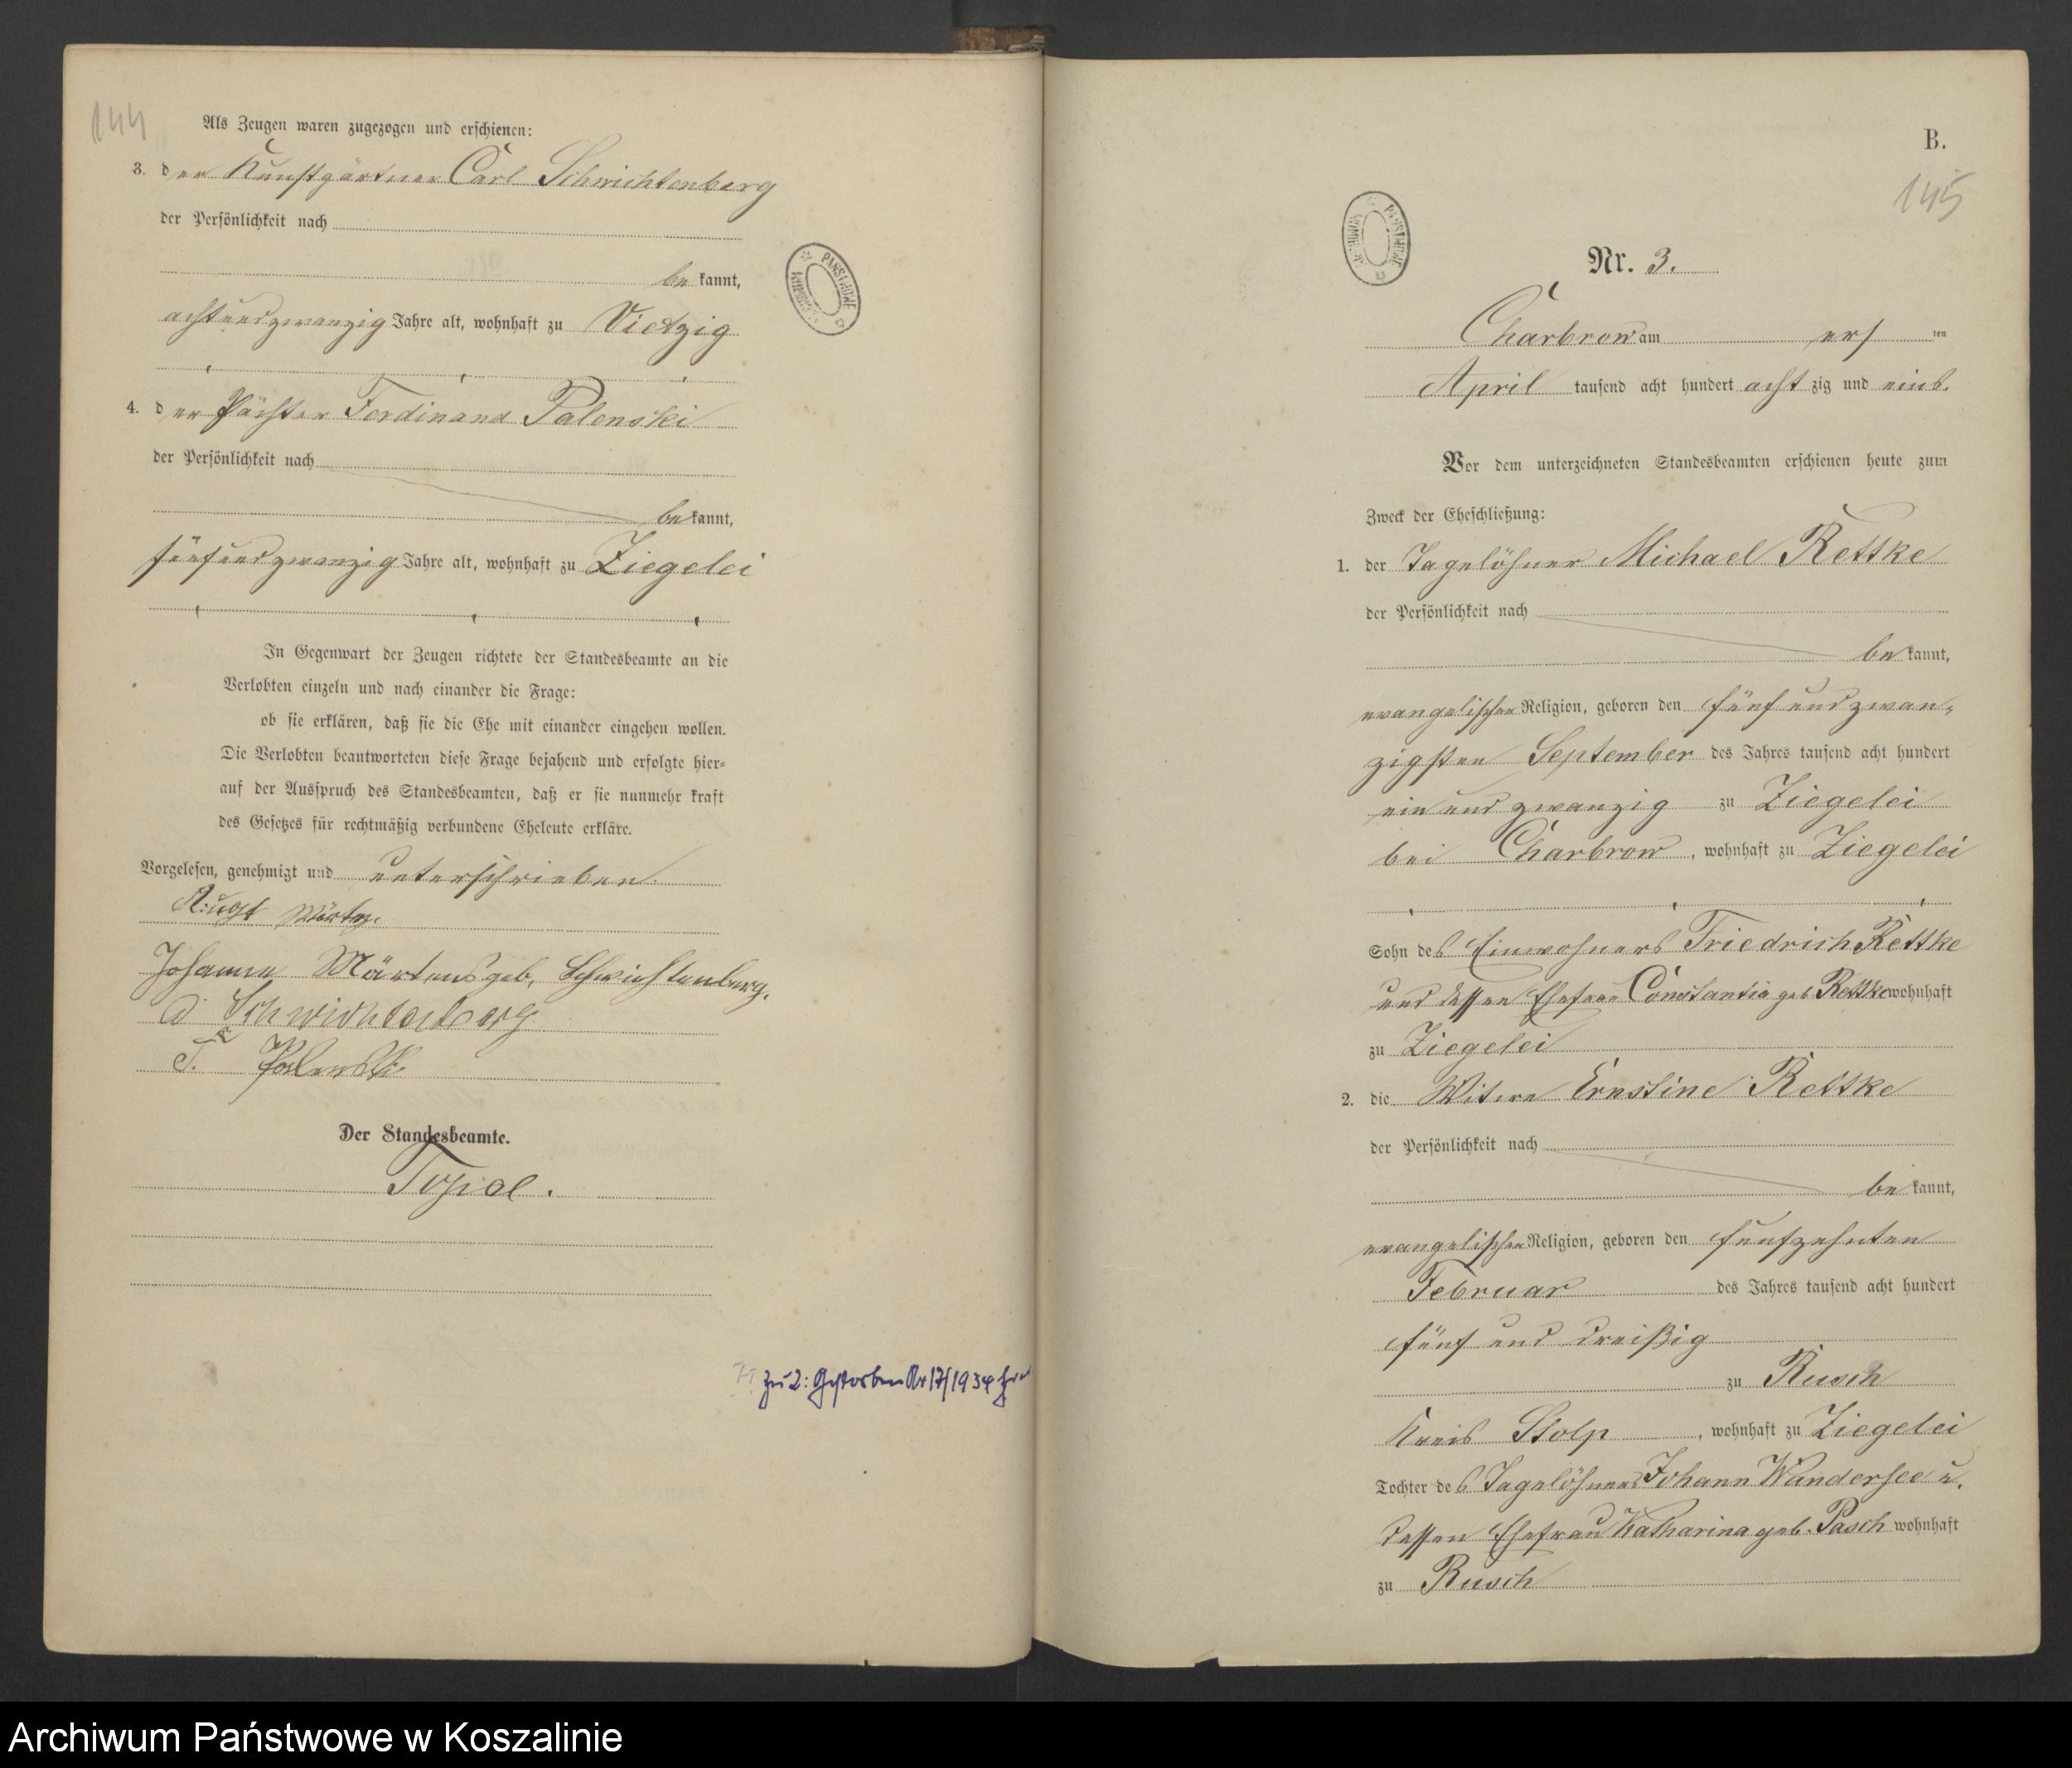 144
Als Zeugen waren zugezogen und erschienen:
3. der Kunstgärtner Carl Schwichtenberg
der Persönlichkeit nach
bekannt,
achtundzwanzig Jahre alt, wohnhaft zu Vietzig
4. der Pächter Ferdinand Palenski
der Persönlichkeit nach
bekannt,
fünfundzwanzig Jahre alt, wohnhaft zu Ziegelei
In Gegenwart der Zeugen richtete der Standesbeamte an die
Verlobten einzeln und nach einander die Frage:
ob sie erklären, daß sie die Ehe mit einander eingehen wollen.
Die Verlobten beantworteten diese Frage bejahend und erfolgte hier-
auf der Ausspruch des Standesbeamten, daß er sie nunmehr kraft
des Gesetzes für rechtmäßig verbundene Eheleute erkläre.
Vorgelesen, genehmigt und unterschrieben.
Johanna Märtens geb. Schwichtenberg.
Schwichtenberg
F. Palenski
Der Standesbeamte.
zu 2: Gestorben Nr 17/1934
PAŃSTWOWE
B.
145
PAŃSTWOWE
Nr. 3.
Charbrow am ersten
April tausend acht hundert achtzig und eins.
Vor dem unterzeichneten Standesbeamten erschienen heute zum
Zweck der Eheschließung:
1. der Tagelöhner Michael Rettke
der Persönlichkeit nach
bekannt,
evangelischer Religion, geboren den fünf und zwan-
zigsten September des Jahres tausend acht hundert
ein und zwanzig zu Ziegelei
bei Charbrow, wohnhaft zu Ziegelei
Sohn des Einwohners Friedrich Rettke
und dessen Ehefrau Constantia geb. Rettke wohnhaft
zu Ziegelei
2. die Witwe Ernstine Rettke
der Persönlichkeit nach
bekannt,
evangelischer Religion, geboren den funfzehnten
Februar des Jahres tausend acht hundert
fünf und dreißig
zu Rusch
Kreis Stolp, wohnhaft zu Ziegelei
Tochter des Tagelöhners Johann Wandersee u.
dessen Ehefrau Katharina geb. Pasch wohnhaft
zu Rusch
Archiwum Państwowe w Koszalinie